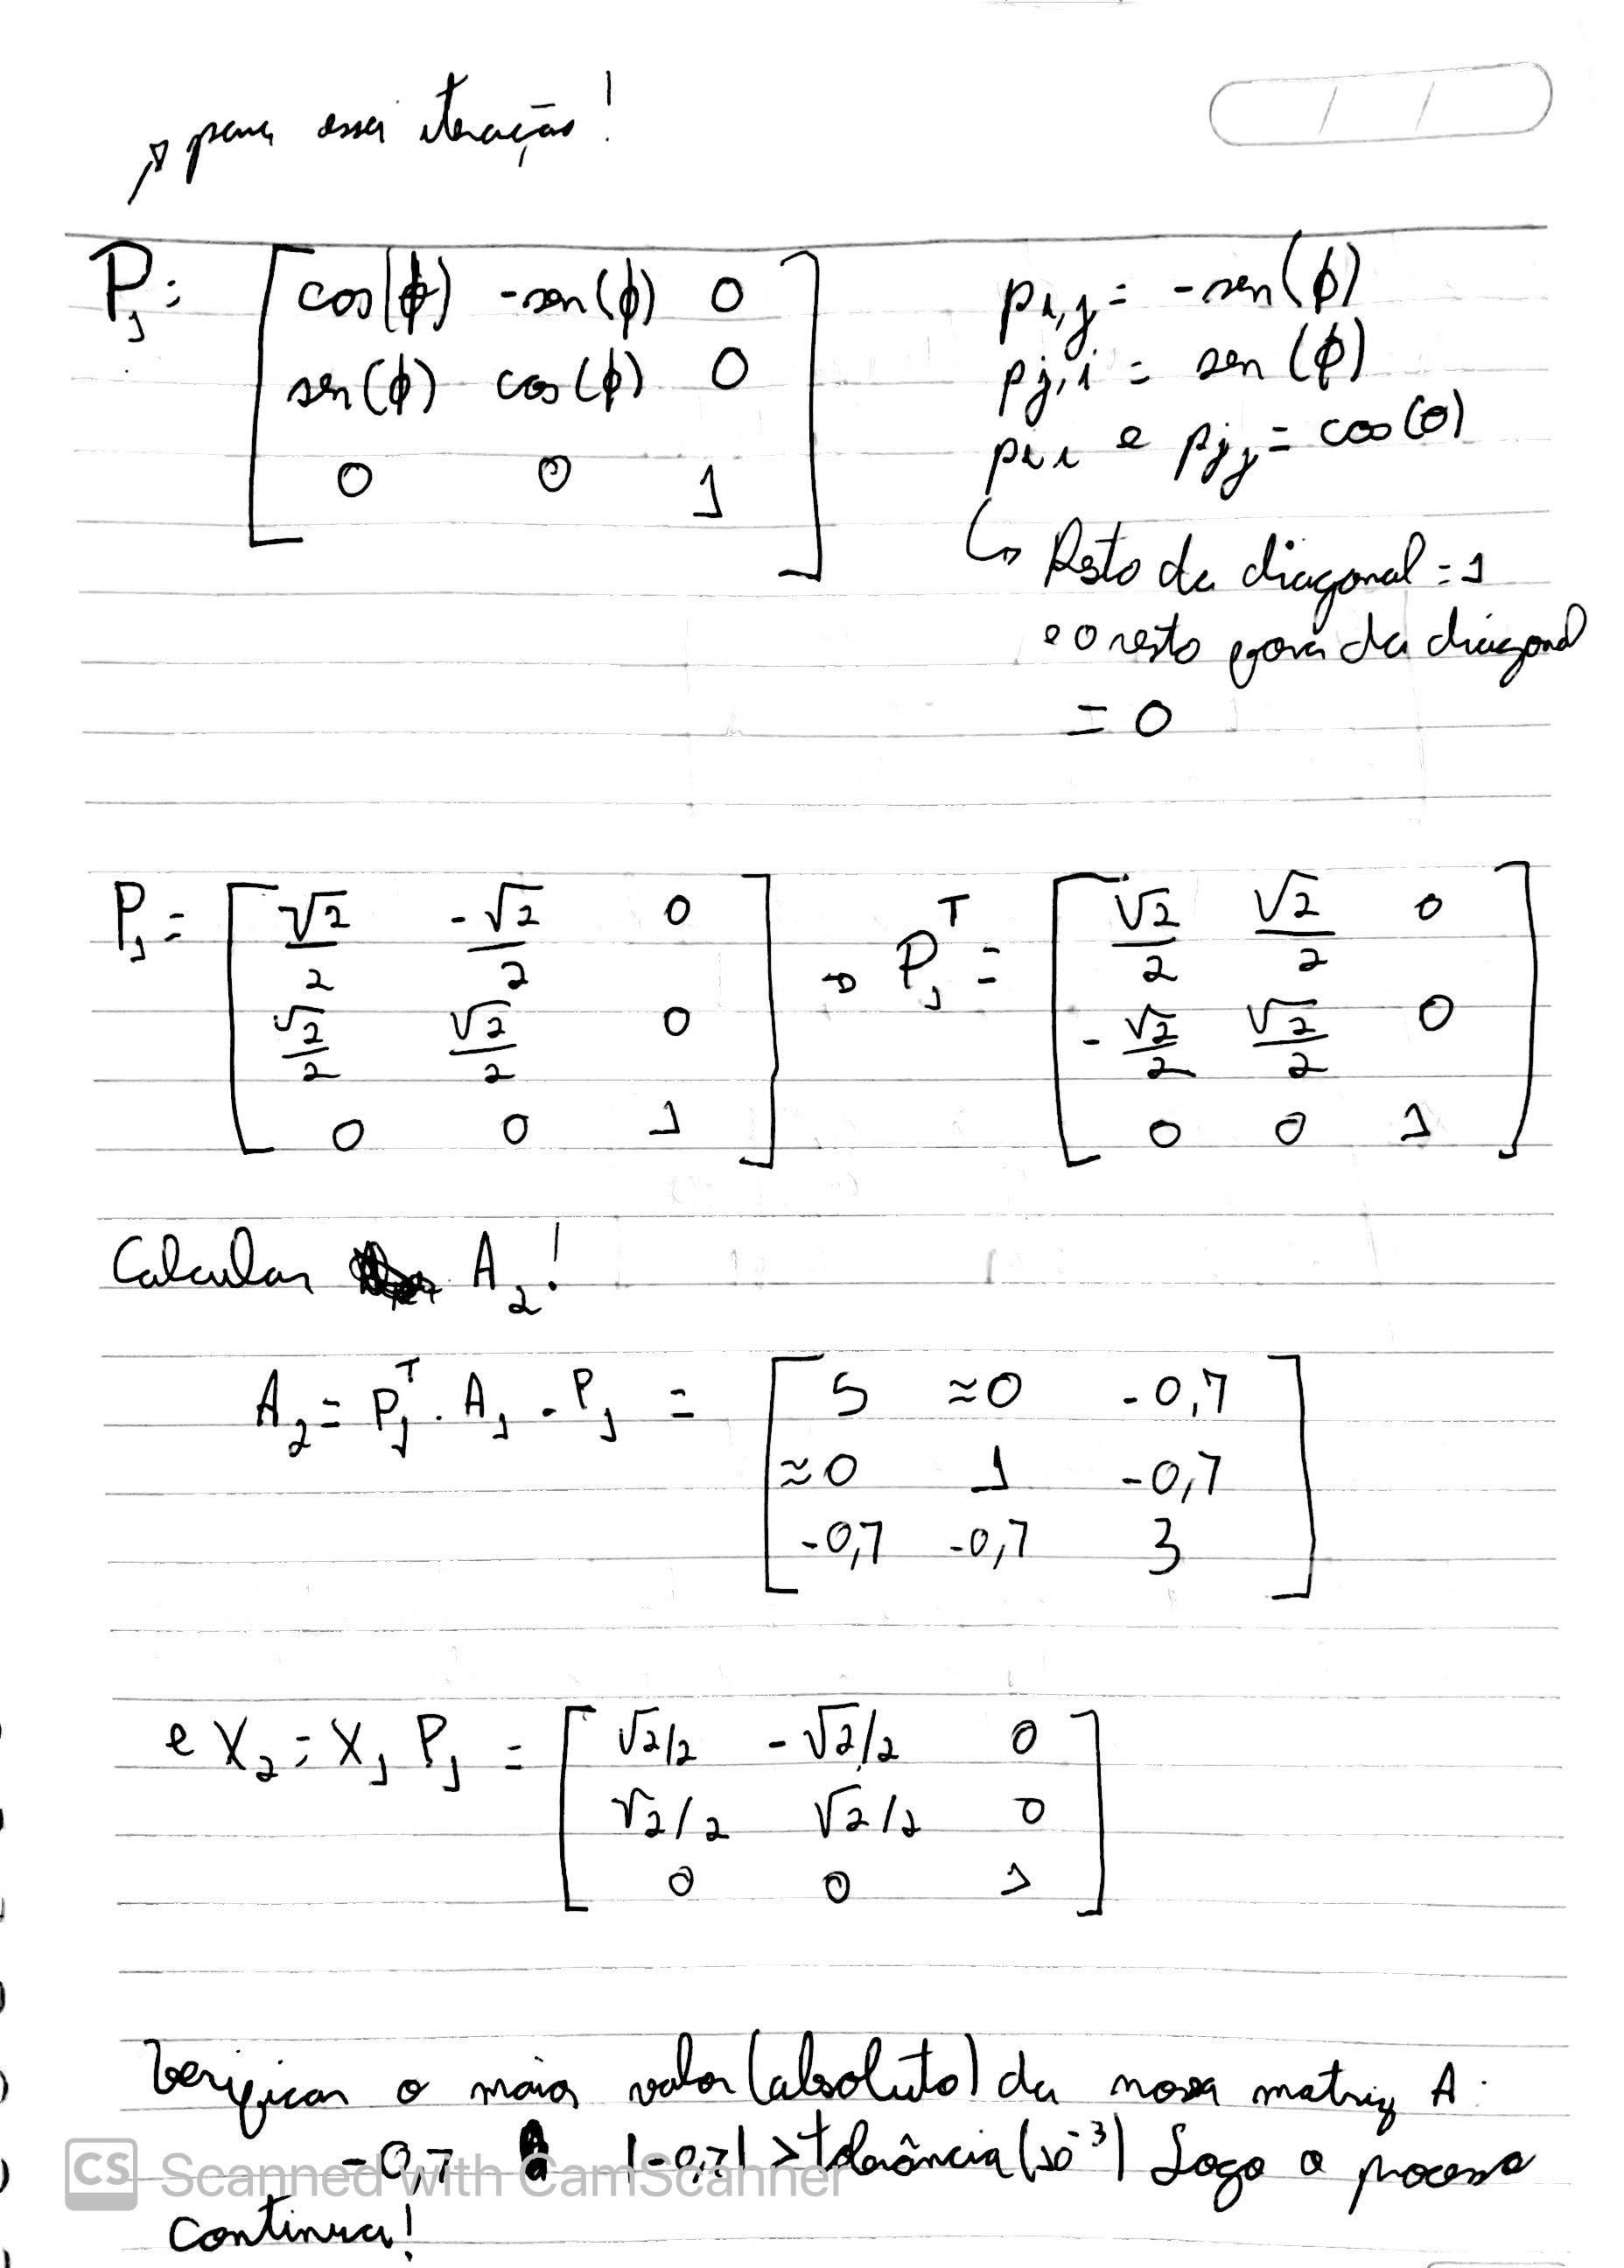 para essa iteração!
P₁ = [ cos(ϕ) -sen(ϕ) 0
sen(ϕ) cos(ϕ) 0
0 0 1 ]
pi,j = -sen(ϕ)
pj,i = sen(ϕ)
pii e pjj = cos(θ)
↳ Resto da diagonal = 1
e o resto fora da diagonal
= 0
P₁ = [ √2/2 -√2/2 0
√2/2 √2/2 0
0 0 1 ]
→ P₁ᵀ = [ √2/2 √2/2 0
-√2/2 √2/2 0
0 0 1 ]
Calcular A₂!
A₂ = P₁ᵀ . A₁ . P₁ = [ 5 ≈0 -0,7
≈0 1 -0,7
-0,7 -0,7 3 ]
e X₂ = X₁ P₁ = [ √2/2 -√2/2 0
√2/2 √2/2 0
0 0 1 ]
Verificar o maior valor (absoluto) da nova matriz A:
-0,7 |-0,7| > tolerância (10⁻³) Logo o processo
continua!
CS Scanned with CamScanner